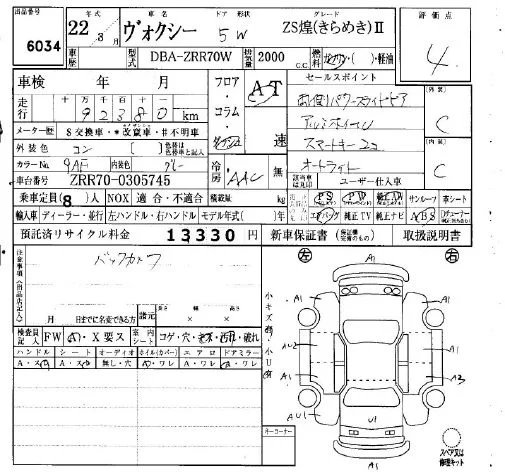 出品番号 年式 車名 ドア 形状 グレード 評価点
6034 22年3月 ヴォクシー 5W ZS煌(きらめき)Ⅱ 4
車歴 型式 DBA-ZRR70W 排気量 2000 C.C. 燃料 ガソリン・( )・軽油
車検 年 月 フロア・コラム・ AT 速 セールスポイント 外装 C
走行 十万 万 千 百 十
92380 km 両側パワースライドドア
メーター歴 S交換車・*改竄車・#不明車 アルミホイール
外装色 コン ( ) 色替は色替車と記入 スマートキー2コ 内装 C
カラーNo. 9AF 内装色 グレー 冷房 AAC 無 オートライト
車台番号 ZRR70-0305745 ユーザー仕入車
乗車定員(8)人 NOX 適合・不適合 積載量 kg PS PW サンルーフ 革シート
輸入車 ディーラー・並行 左ハンドル・右ハンドル モデル年式( )年 エアバッグ 純正TV 純正ナビ ABS
預託済リサイクル料金 13330円 新車保証書 取扱説明書
注意事項(出品店記入) バックカメラ 左 右
月 日までに名変できる方 諸元 長さ 幅 高さ
検査員記入 FW A・X要ス 室内シート コゲ・穴・・汚れ・破れ 小キズ有・小凹有
ハンドル シート オーディオ ホイル(カバー) エアロ ドアミラー
A・ス A・ス 無し・穴 A・ワレ A・ワレ A・ワレ
A1
A1 A1
AU2 A1
A1 A3
AU1 U1 A1
コーナー A1 スペア又は修理キット